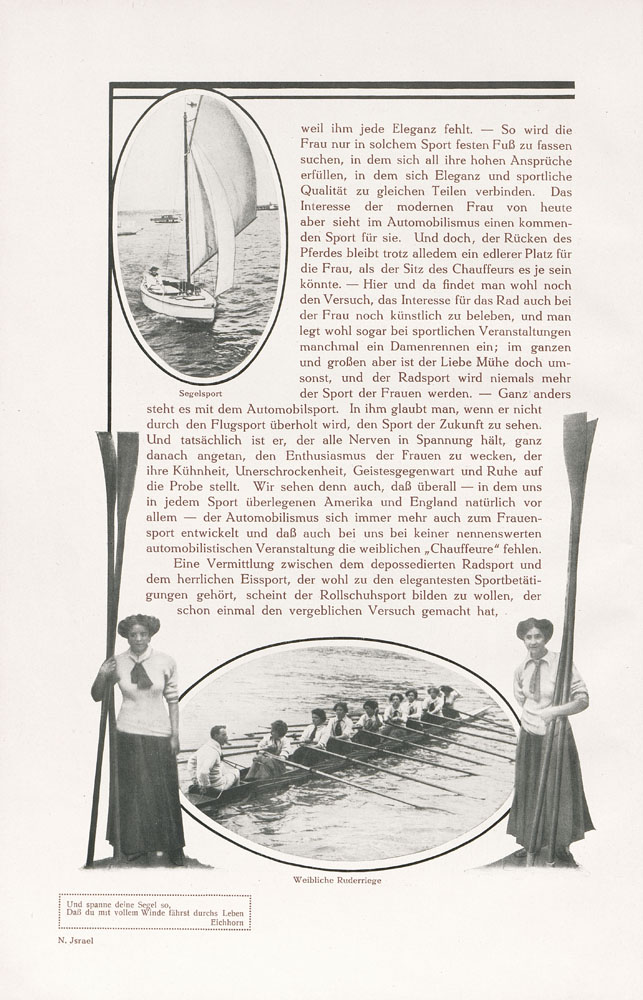 weil ihm jede Eleganz fehlt. — So wird die
Frau nur in solchem Sport festen Fuß zu fassen
suchen, in dem sich all ihre hohen Ansprüche
erfüllen, in dem sich Eleganz und sportliche
Qualität zu gleichen Teilen verbinden. Das
Interesse der modernen Frau von heute
aber sieht im Automobilismus einen kommen-
den Sport für sie. Und doch, der Rücken des
Pferdes bleibt trotz alledem ein edlerer Platz für
die Frau, als der Sitz des Chauffeurs es je sein
könnte. — Hier und da findet man wohl noch
den Versuch, das Interesse für das Rad auch bei
der Frau noch künstlich zu beleben, und man
legt wohl sogar bei sportlichen Veranstaltungen
manchmal ein Damenrennen ein; im ganzen
und großen aber ist der Liebe Mühe doch um-
sonst, und der Radsport wird niemals mehr
der Sport der Frauen werden. — Ganz anders
Segelsport
steht es mit dem Automobilsport. In ihm glaubt man, wenn er nicht
durch den Flugsport überholt wird, den Sport der Zukunft zu sehen.
Und tatsächlich ist er, der alle Nerven in Spannung hält, ganz
danach angetan, den Enthusiasmus der Frauen zu wecken, der
ihre Kühnheit, Unerschrockenheit, Geistesgegenwart und Ruhe auf
die Probe stellt. Wir sehen denn auch, daß überall — in dem uns
in jedem Sport überlegenen Amerika und England natürlich vor
allem — der Automobilismus sich immer mehr auch zum Frauen-
sport entwickelt und daß auch bei uns bei keiner nennenswerten
automobilistischen Veranstaltung die weiblichen „Chauffeure“ fehlen.
Eine Vermittlung zwischen dem depossedierten Radsport und
dem herrlichen Eissport, der wohl zu den elegantesten Sportbetäti-
gungen gehört, scheint der Rollschuhsport bilden zu wollen, der
schon einmal den vergeblichen Versuch gemacht hat,
Weibliche Ruderriege
Und spanne deine Segel so,
Daß du mit vollem Winde fährst durchs Leben
Eichhorn
N. Jsrael